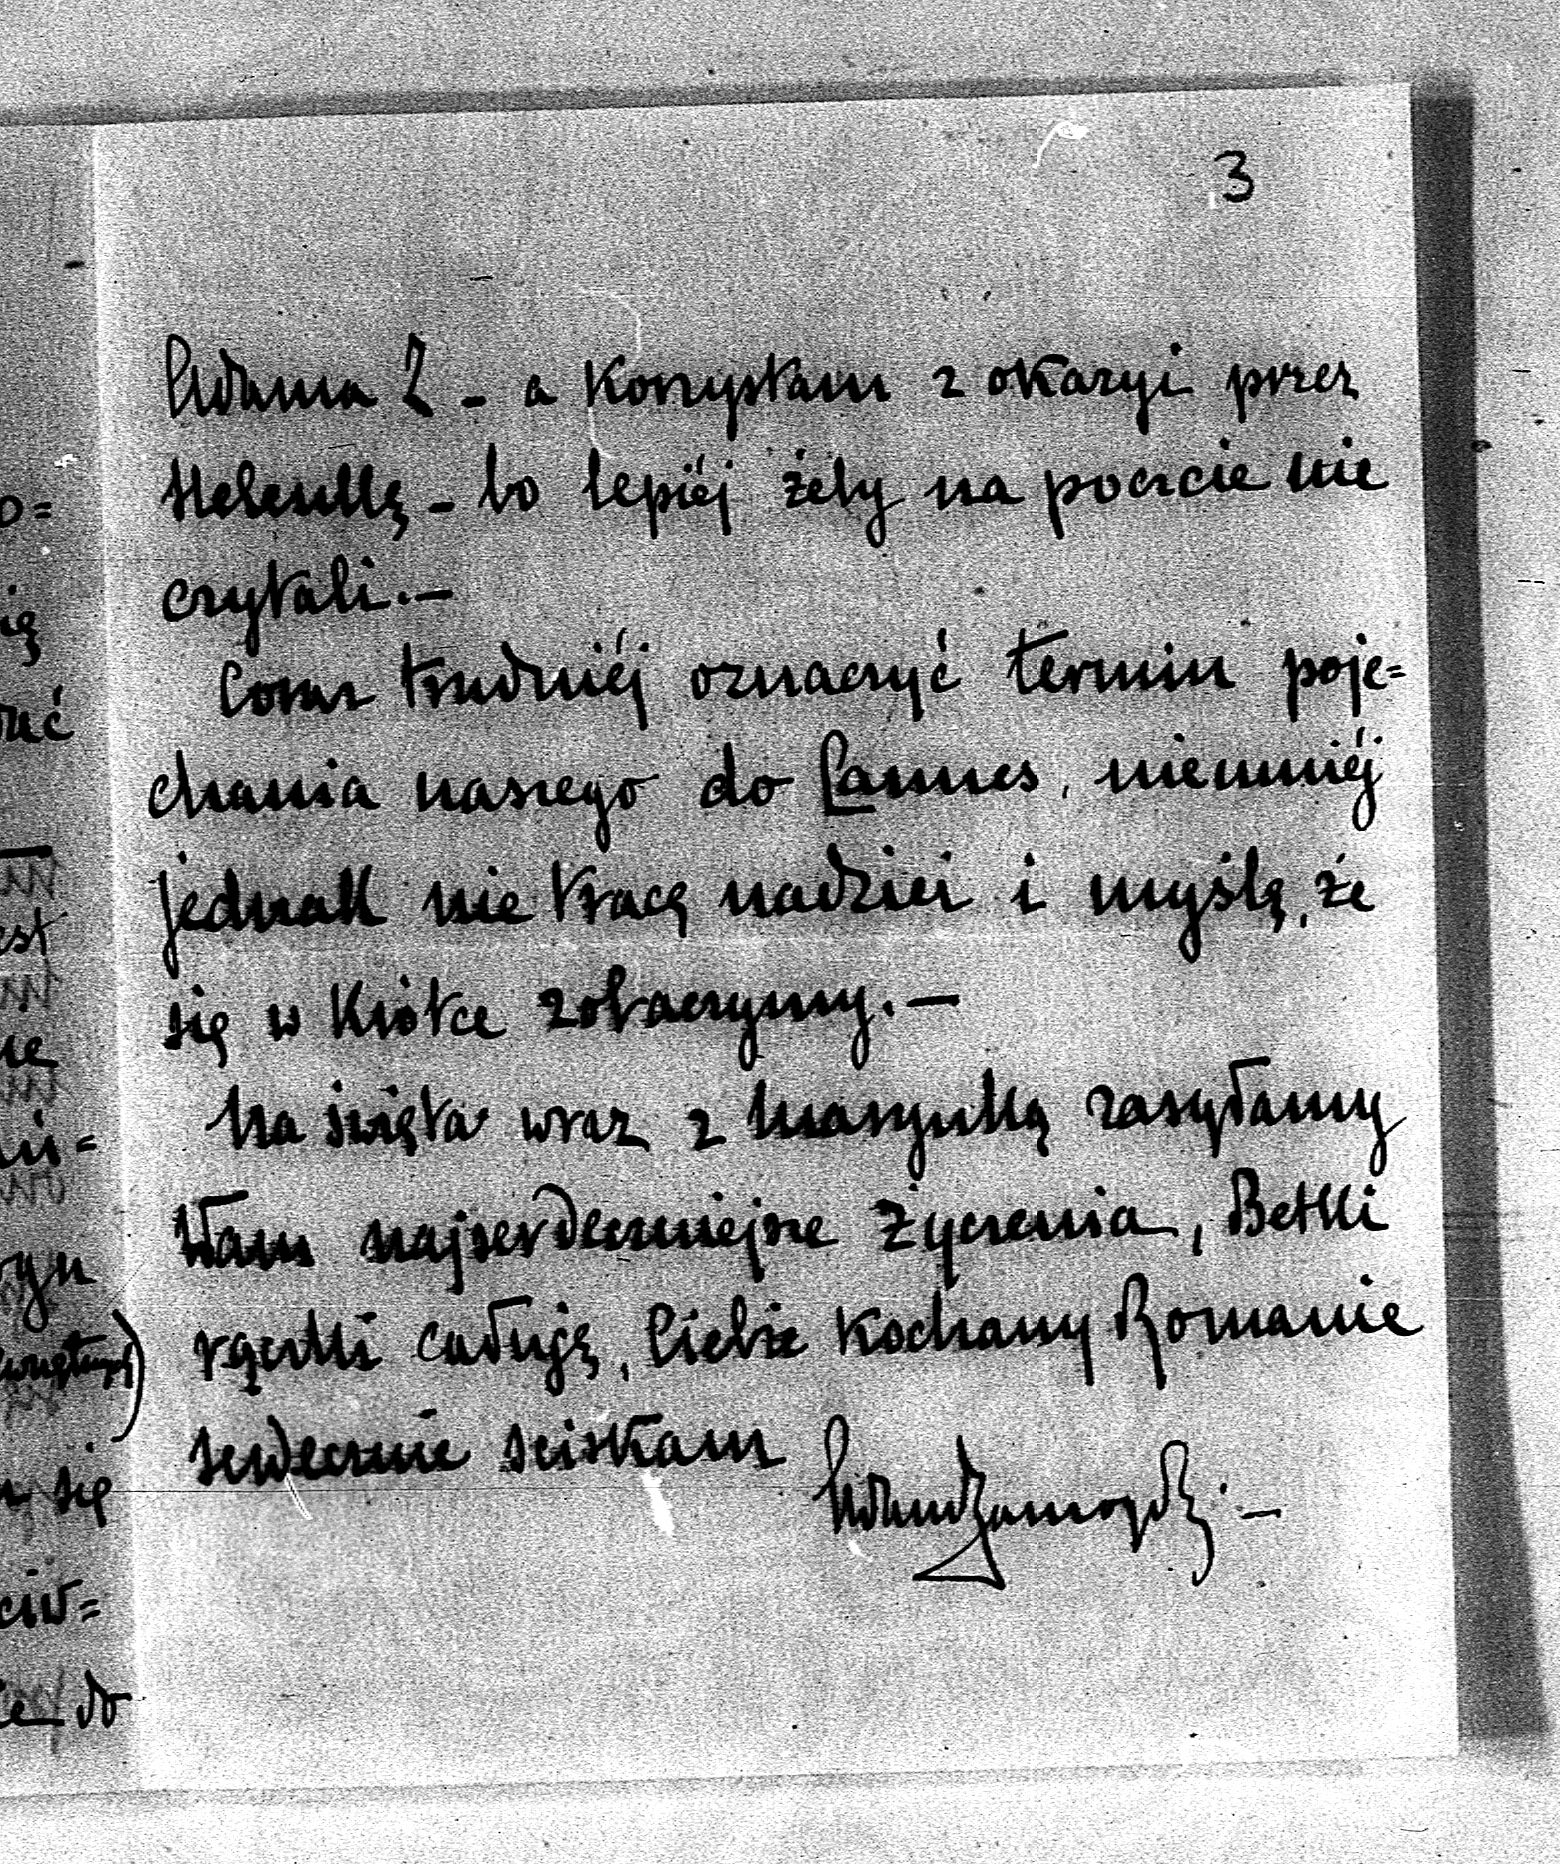 3
Adama Z - a korzystam z okazyi przez
Helenkę - bo lepiéj żeby na poczcie nie
czytali.-
Coraz trudniéj oznaczyć termin poje=
chania naszego do Cannes, niemniéj
jednak nie tracę nadziei i myślę, że
się w krótce zobaczymy.-
Na święta wraz z Maryntką zasyłamy
Wam najserdeczniejsze życzenia, Betki
rączki całuję, Ciebie kochany Romanie
serdecznie sciskam
Adam Zamoyski.-